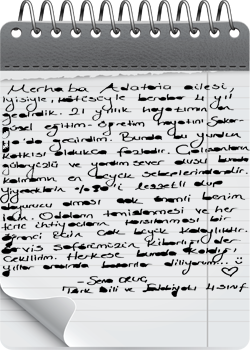 Merhaba Adatoria ailesi,
İyisiyle, kötüsüyle beraber 4 yıl
geçirdik. 21 yıllık hayatımın en
güzel eğitim-öğretim hayatını Sakar-
ya'da geçirdim. Bunda bu yurdun
katkısı oldukça fazladır. Çalışanların
güleryüzlü ve yardımsever oluşu burada
kalmamın en büyük sebeplerindendir.
Yiyeceklerin lezzetli olup
doyurucu olması çok önemli benim
için. Odaların temizlenmesi ve her
türlü ihtiyaçların karşılanması bir
öğrenci için çok büyük kolaylıktır.
Servis şoförümüzün
çekilirim. Herkese burada kaldığı
yıllar aranda başarılar diliyorum...
- Sena
Türk Dili ve Edebiyatı 4.sınıf